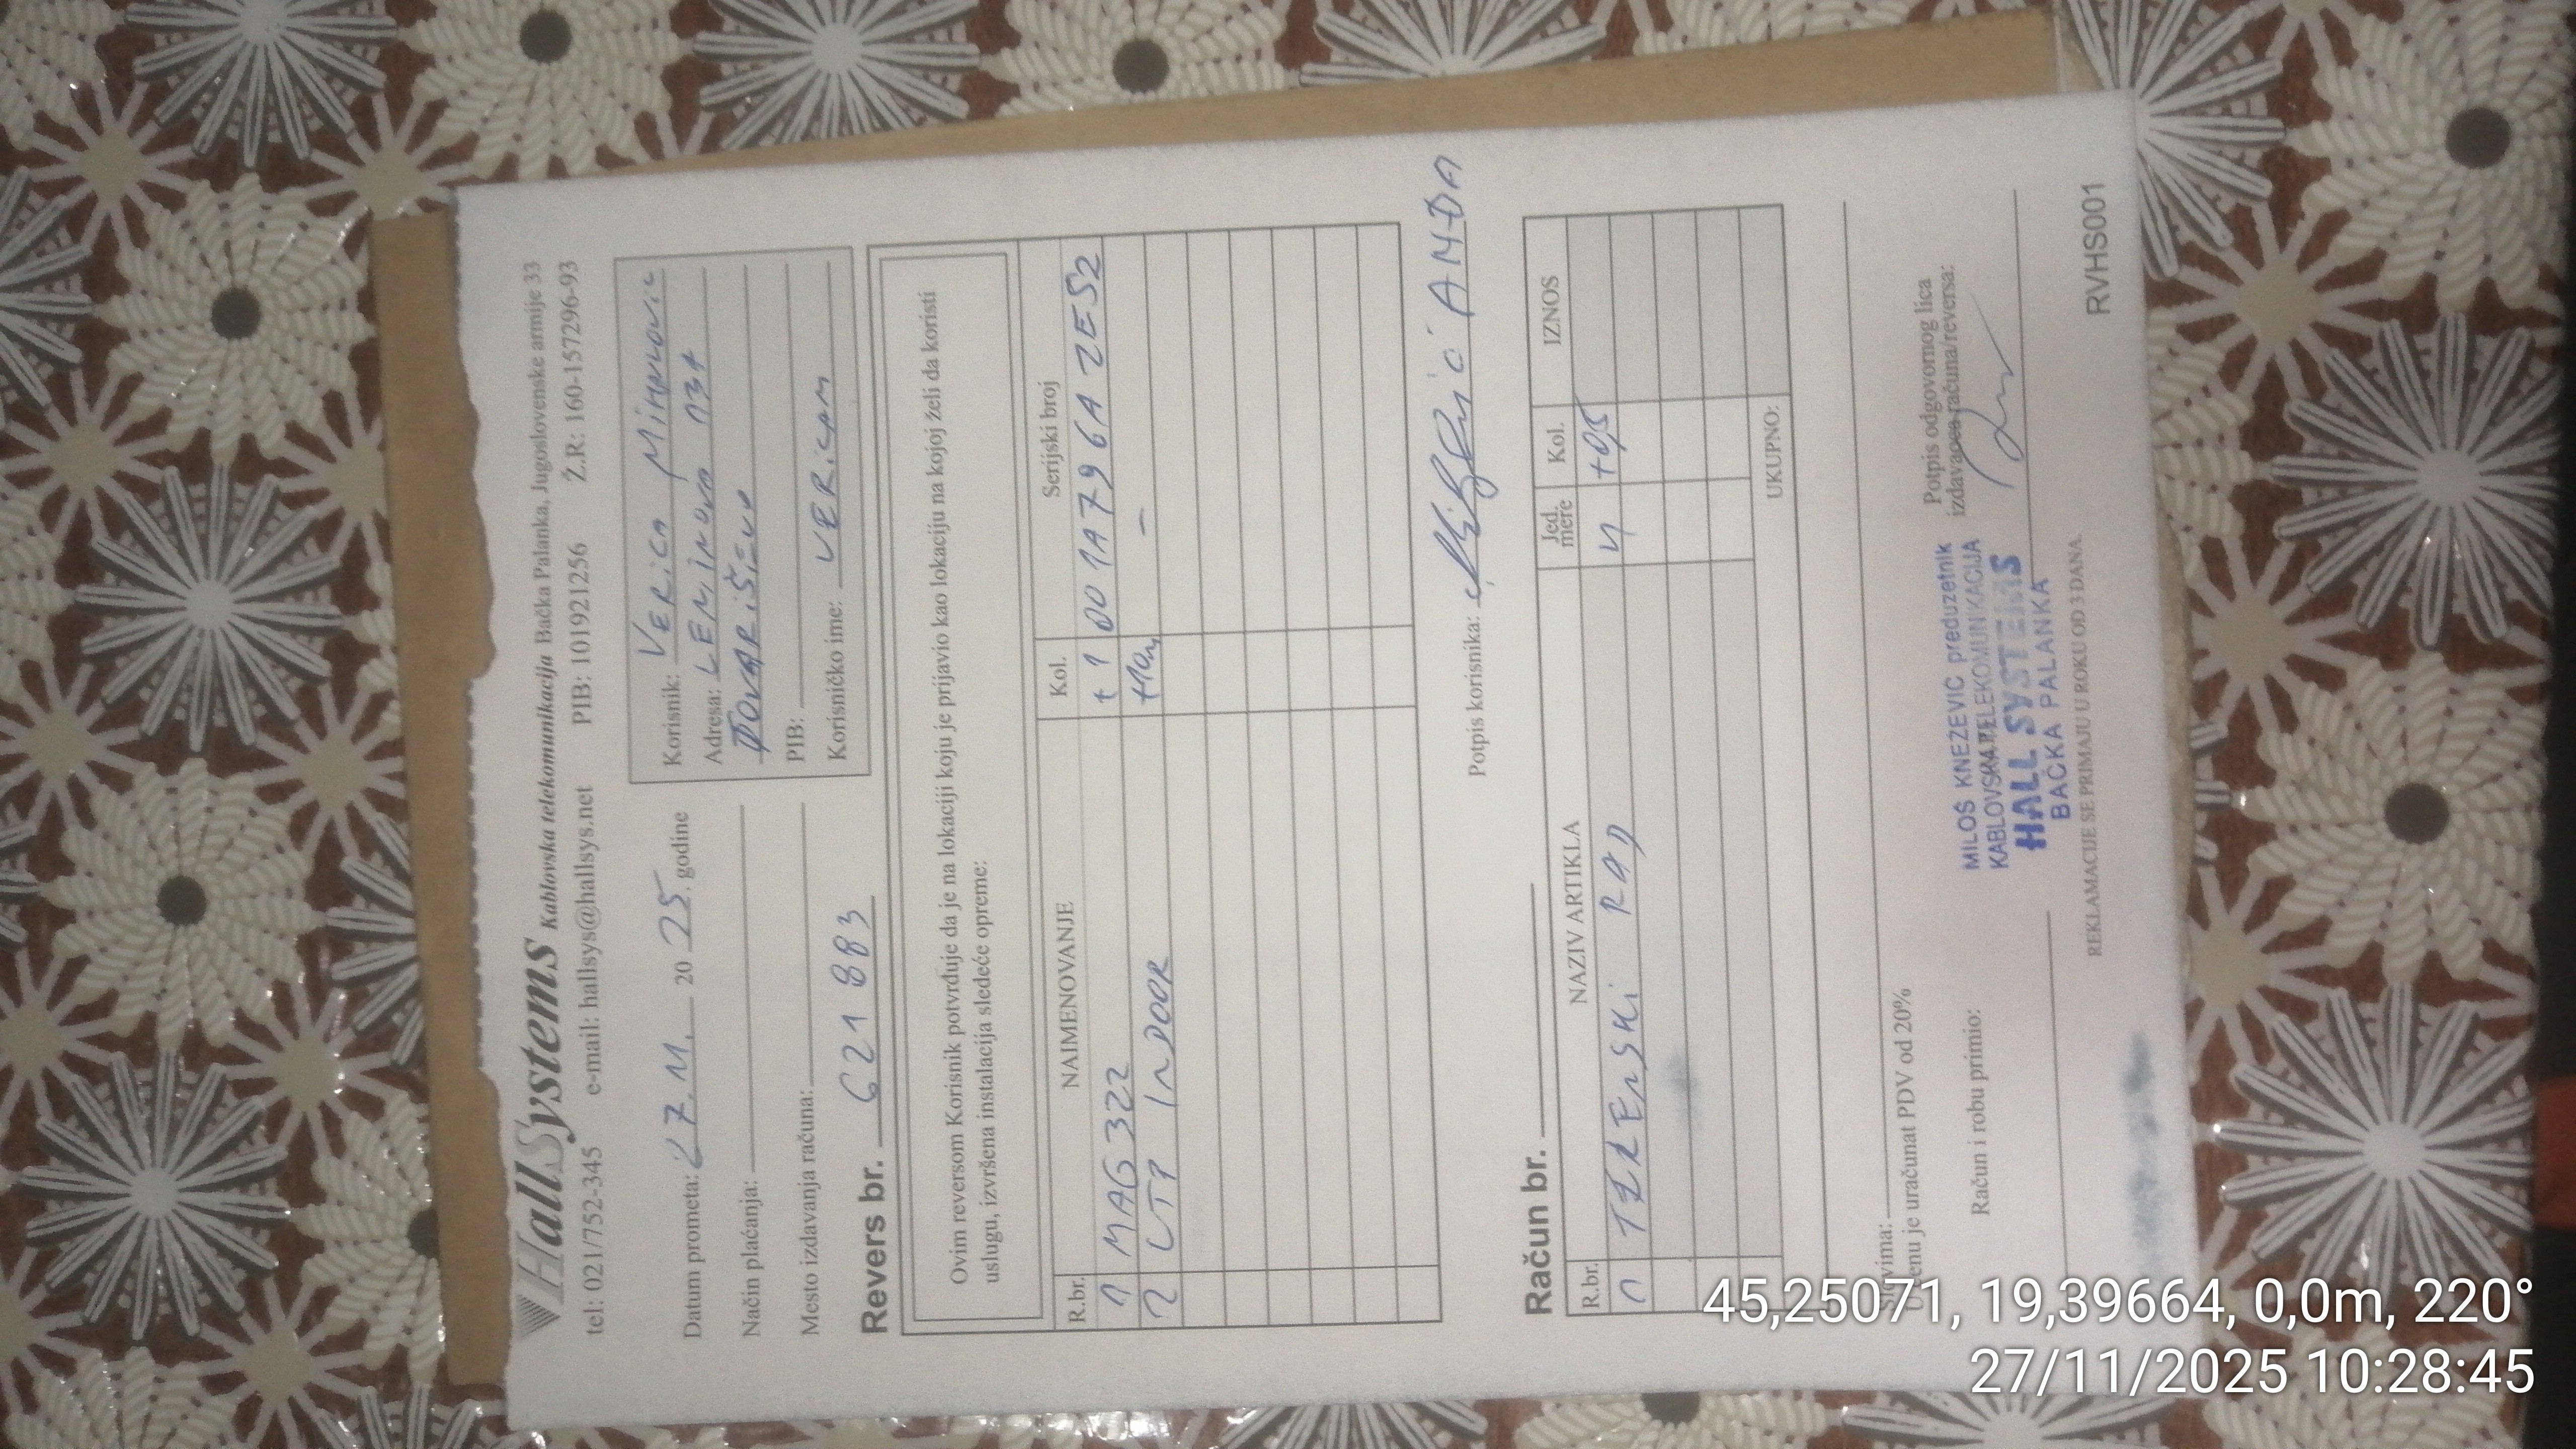 HallSystems Kablovska telekomunikacija Bačka Palanka, Jugoslovenske armije 33
tel: 021/752-345 e-mail: hallsys@hallsys.net PIB: 101921256 Ž.R: 160-157296-93
Datum prometa: 27.11. 20 25. godine
Način plaćanja:
Mesto izdavanja računa:
Korisnik: VERICA
Adresa:
PIB:
Korisničko ime: VERICAM
Revers br. 621883
Ovim reversom Korisnik potvrđuje da je na lokaciji koju je prijavio kao lokaciju na kojoj želi da koristi
uslugu, izvršena instalacija sledeće opreme:
R.br. NAIMENOVANJE Kol. Serijski broj
1 MAG322 +1 001A796A2E52
2 UTP INDOOR +10m –
Potpis korisnika: ANĐA
Račun br.
R.br. NAZIV ARTIKLA Jed. mere Kol. IZNOS
1 TERENSKI RAD +0,5
UKUPNO:
Slovima:
U cenu je uračunat PDV od 20%
Račun i robu primio:
MILOŠ KNEZEVIĆ preduzetnik
KABLOVSKA TELEKOMUNIKACIJA
HALL SYSTEMS
BAČKA PALANKA
Potpis odgovornog lica
izdavaoca računa/reversa:
REKLAMACIJE SE PRIMAJU U ROKU OD 3 DANA.
RVHS001
45,25071, 19,39664, 0,0m, 220°
27/11/2025 10:28:45